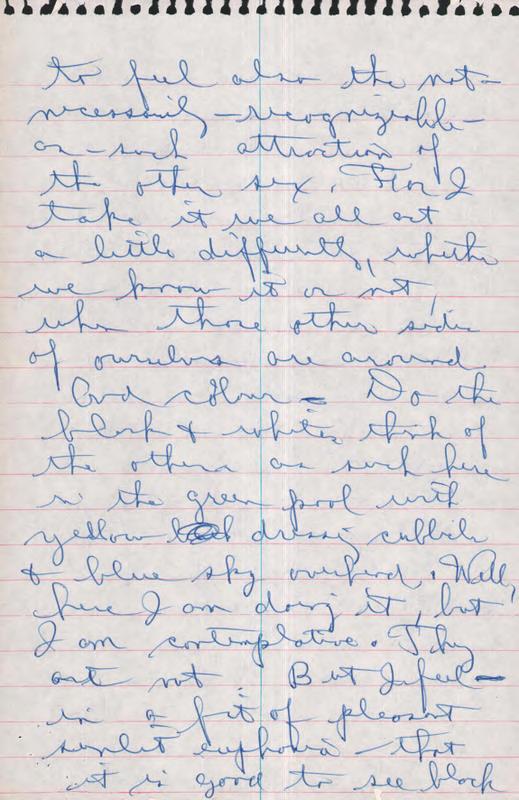 to feel also the not-
necessarily-recognizable-
as-such attraction of
the other sex. For I
take it we all act
a little differently, whether
we know it or not,
when those other sides
of ourselves are around.
And colour - Do the
black & whites think of
the others as such here
in the green pool with
yellow dressing cubicle
& blue sky overhead. Well,
here I am doing it, but
I am contemplative. They
are not. But I feel -
in a fit of pleasant
sunlit euphoria - that
it is good to see black